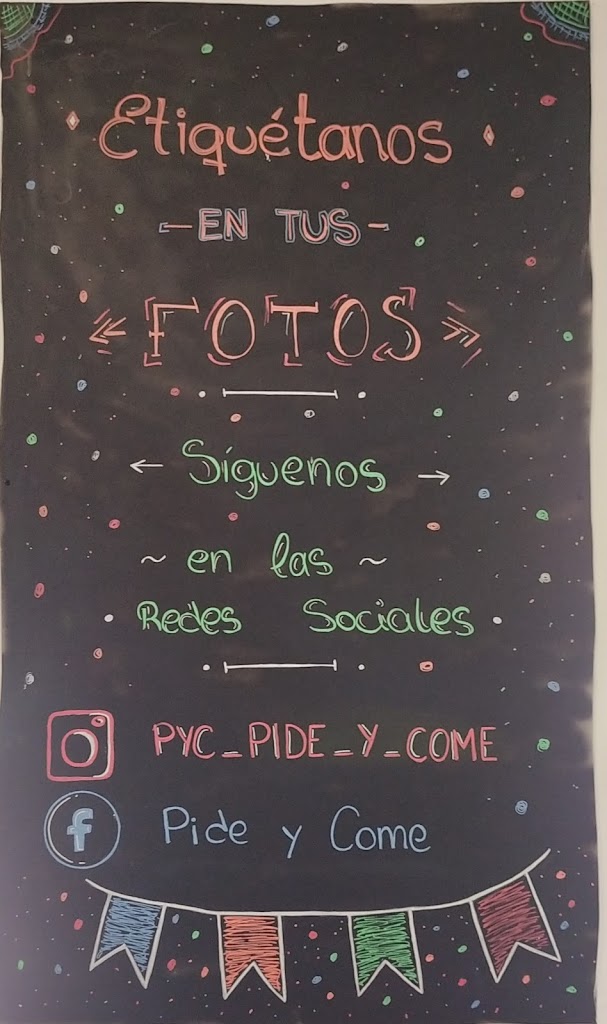 Etiquétanos
EN TUS
FOTOS
Síguenos
en las
Redes Sociales
PYC_PIDE_Y_COME
f Pide y Come